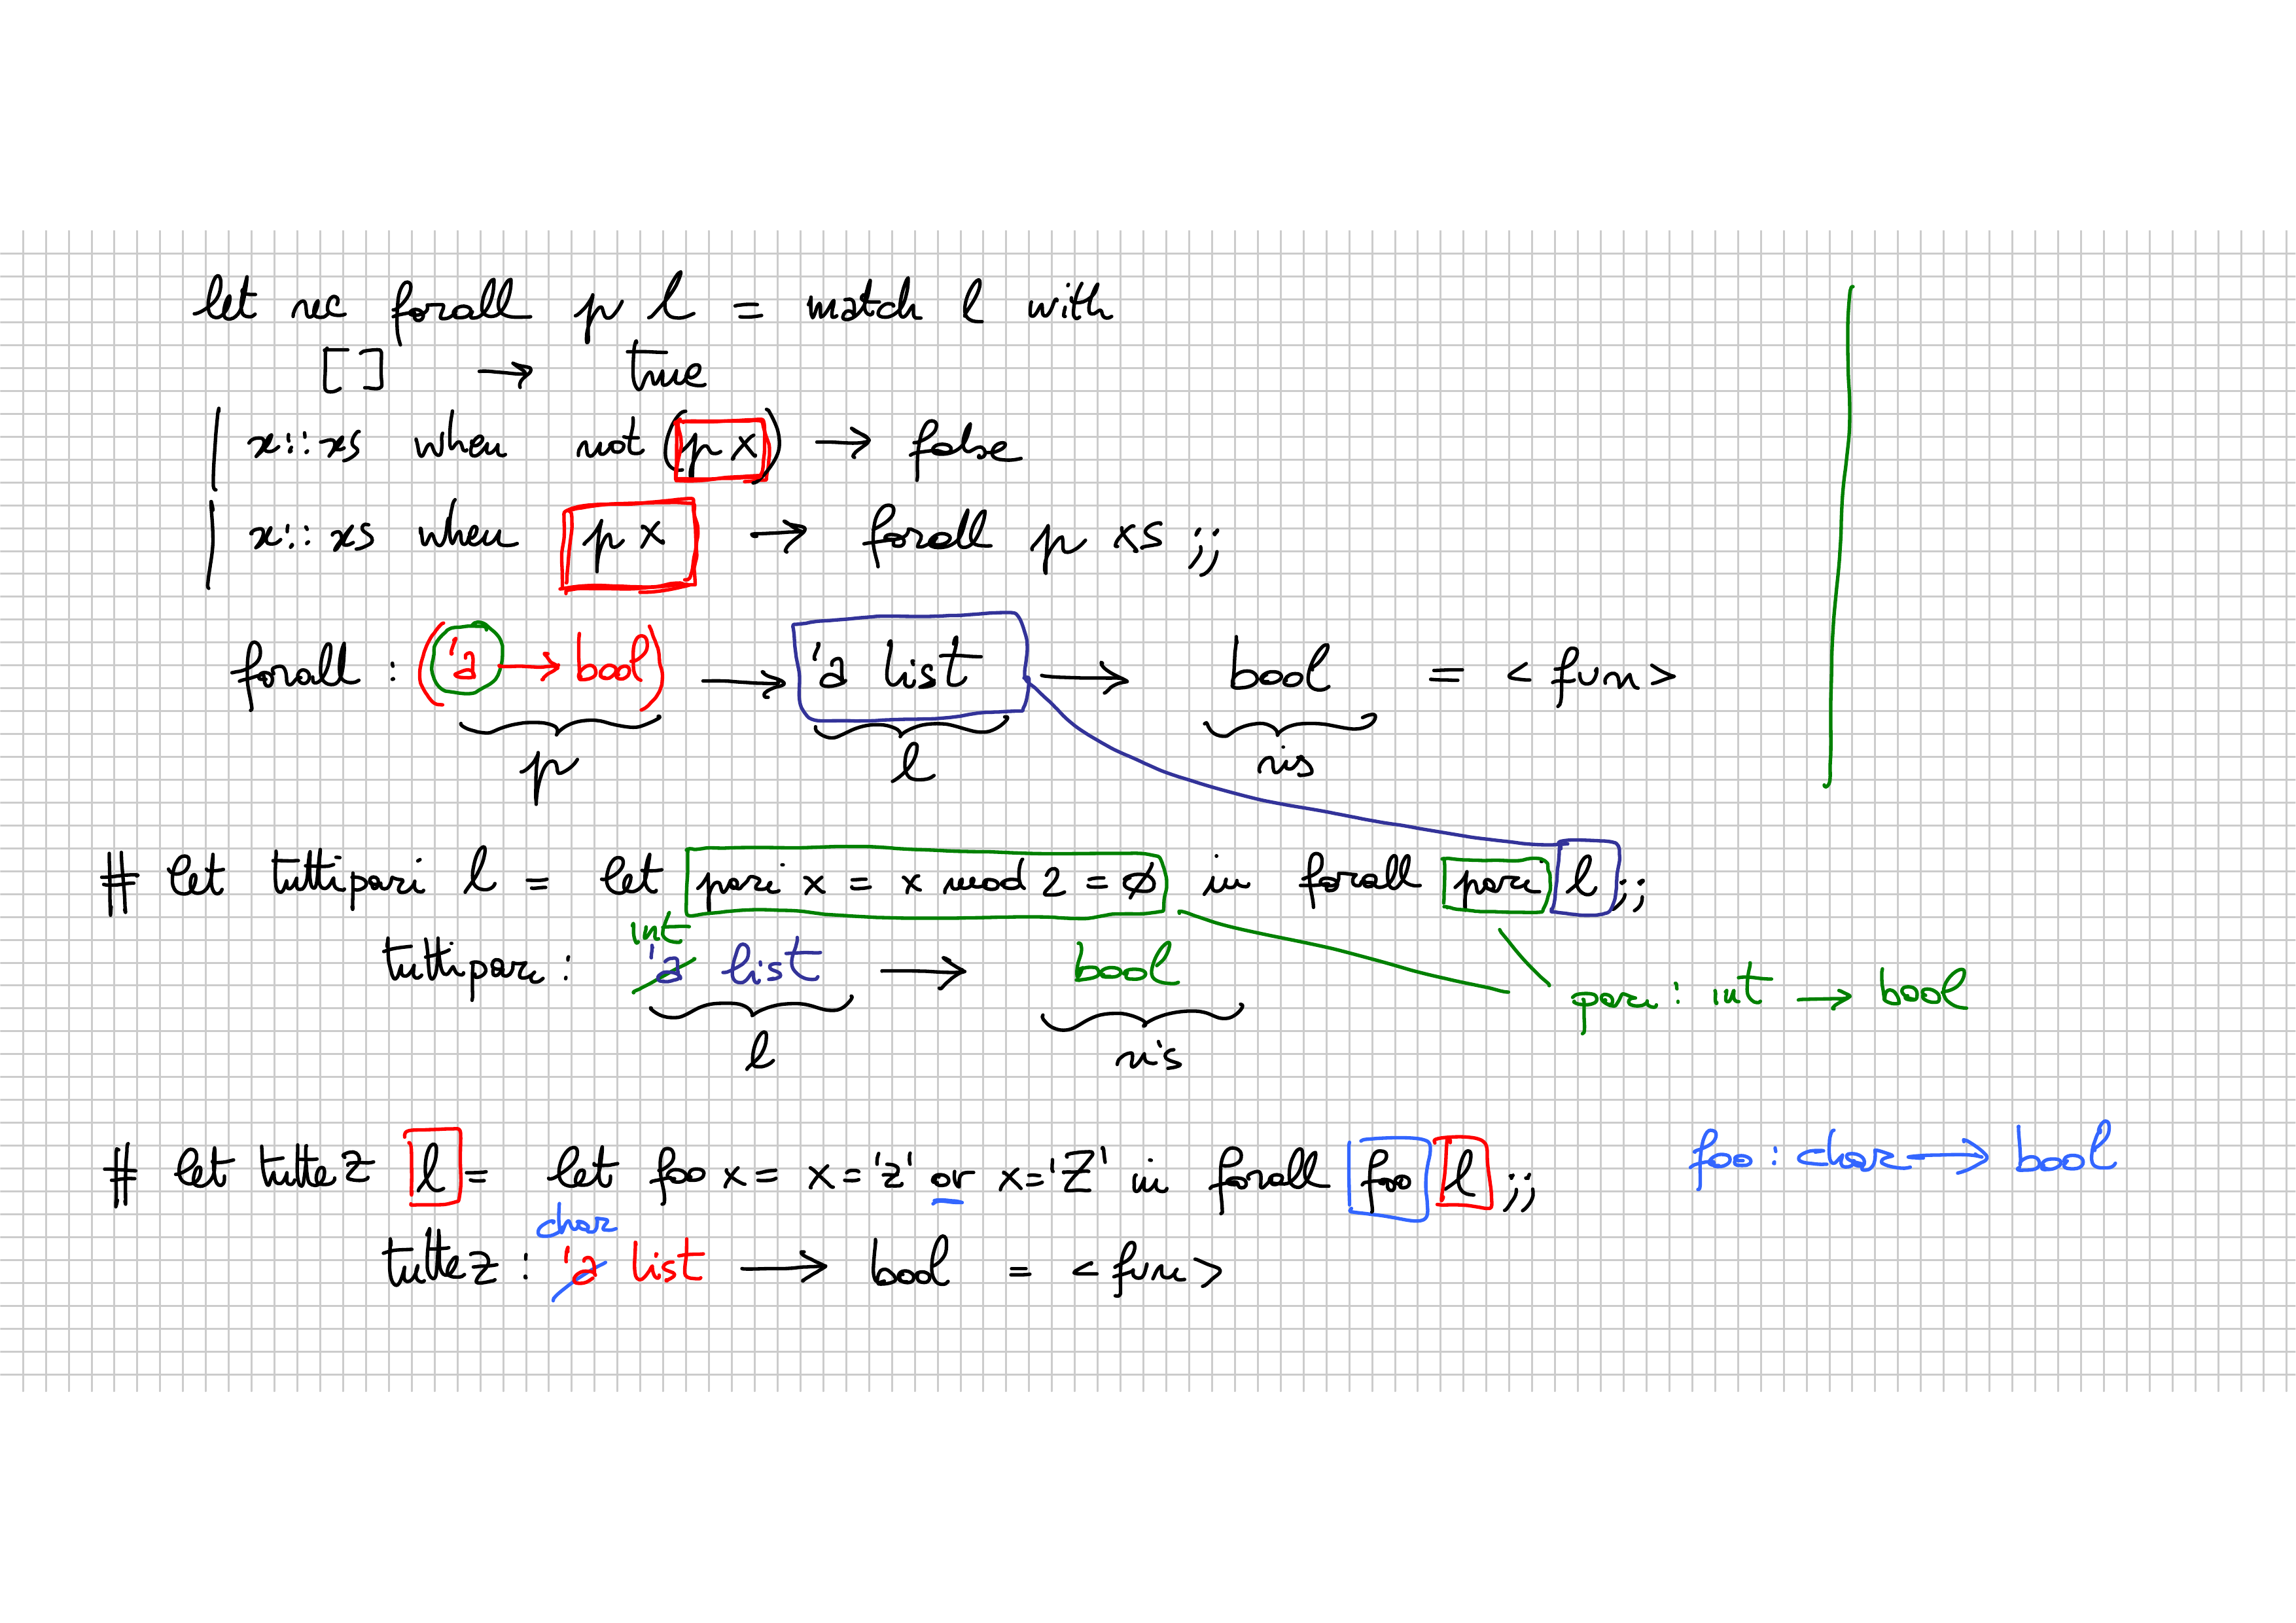 let rec forall p l = match l with
[] → true
| x::xs when not (p x) → false
| x::xs when p x → forall p xs ;;
forall : ('a → bool) → 'a list → bool = <fun>
p l ris
# let tuttipari l = let pari x = x mod 2 = 0 in forall pari l ;;
int
tuttipari : 'a list → bool
pari : int → bool
l ris
# let tuttez l = let foo x = x = 'z' or x = 'Z' in forall foo l ;;
foo : char → bool
char
tuttez : 'a list → bool = <fun>